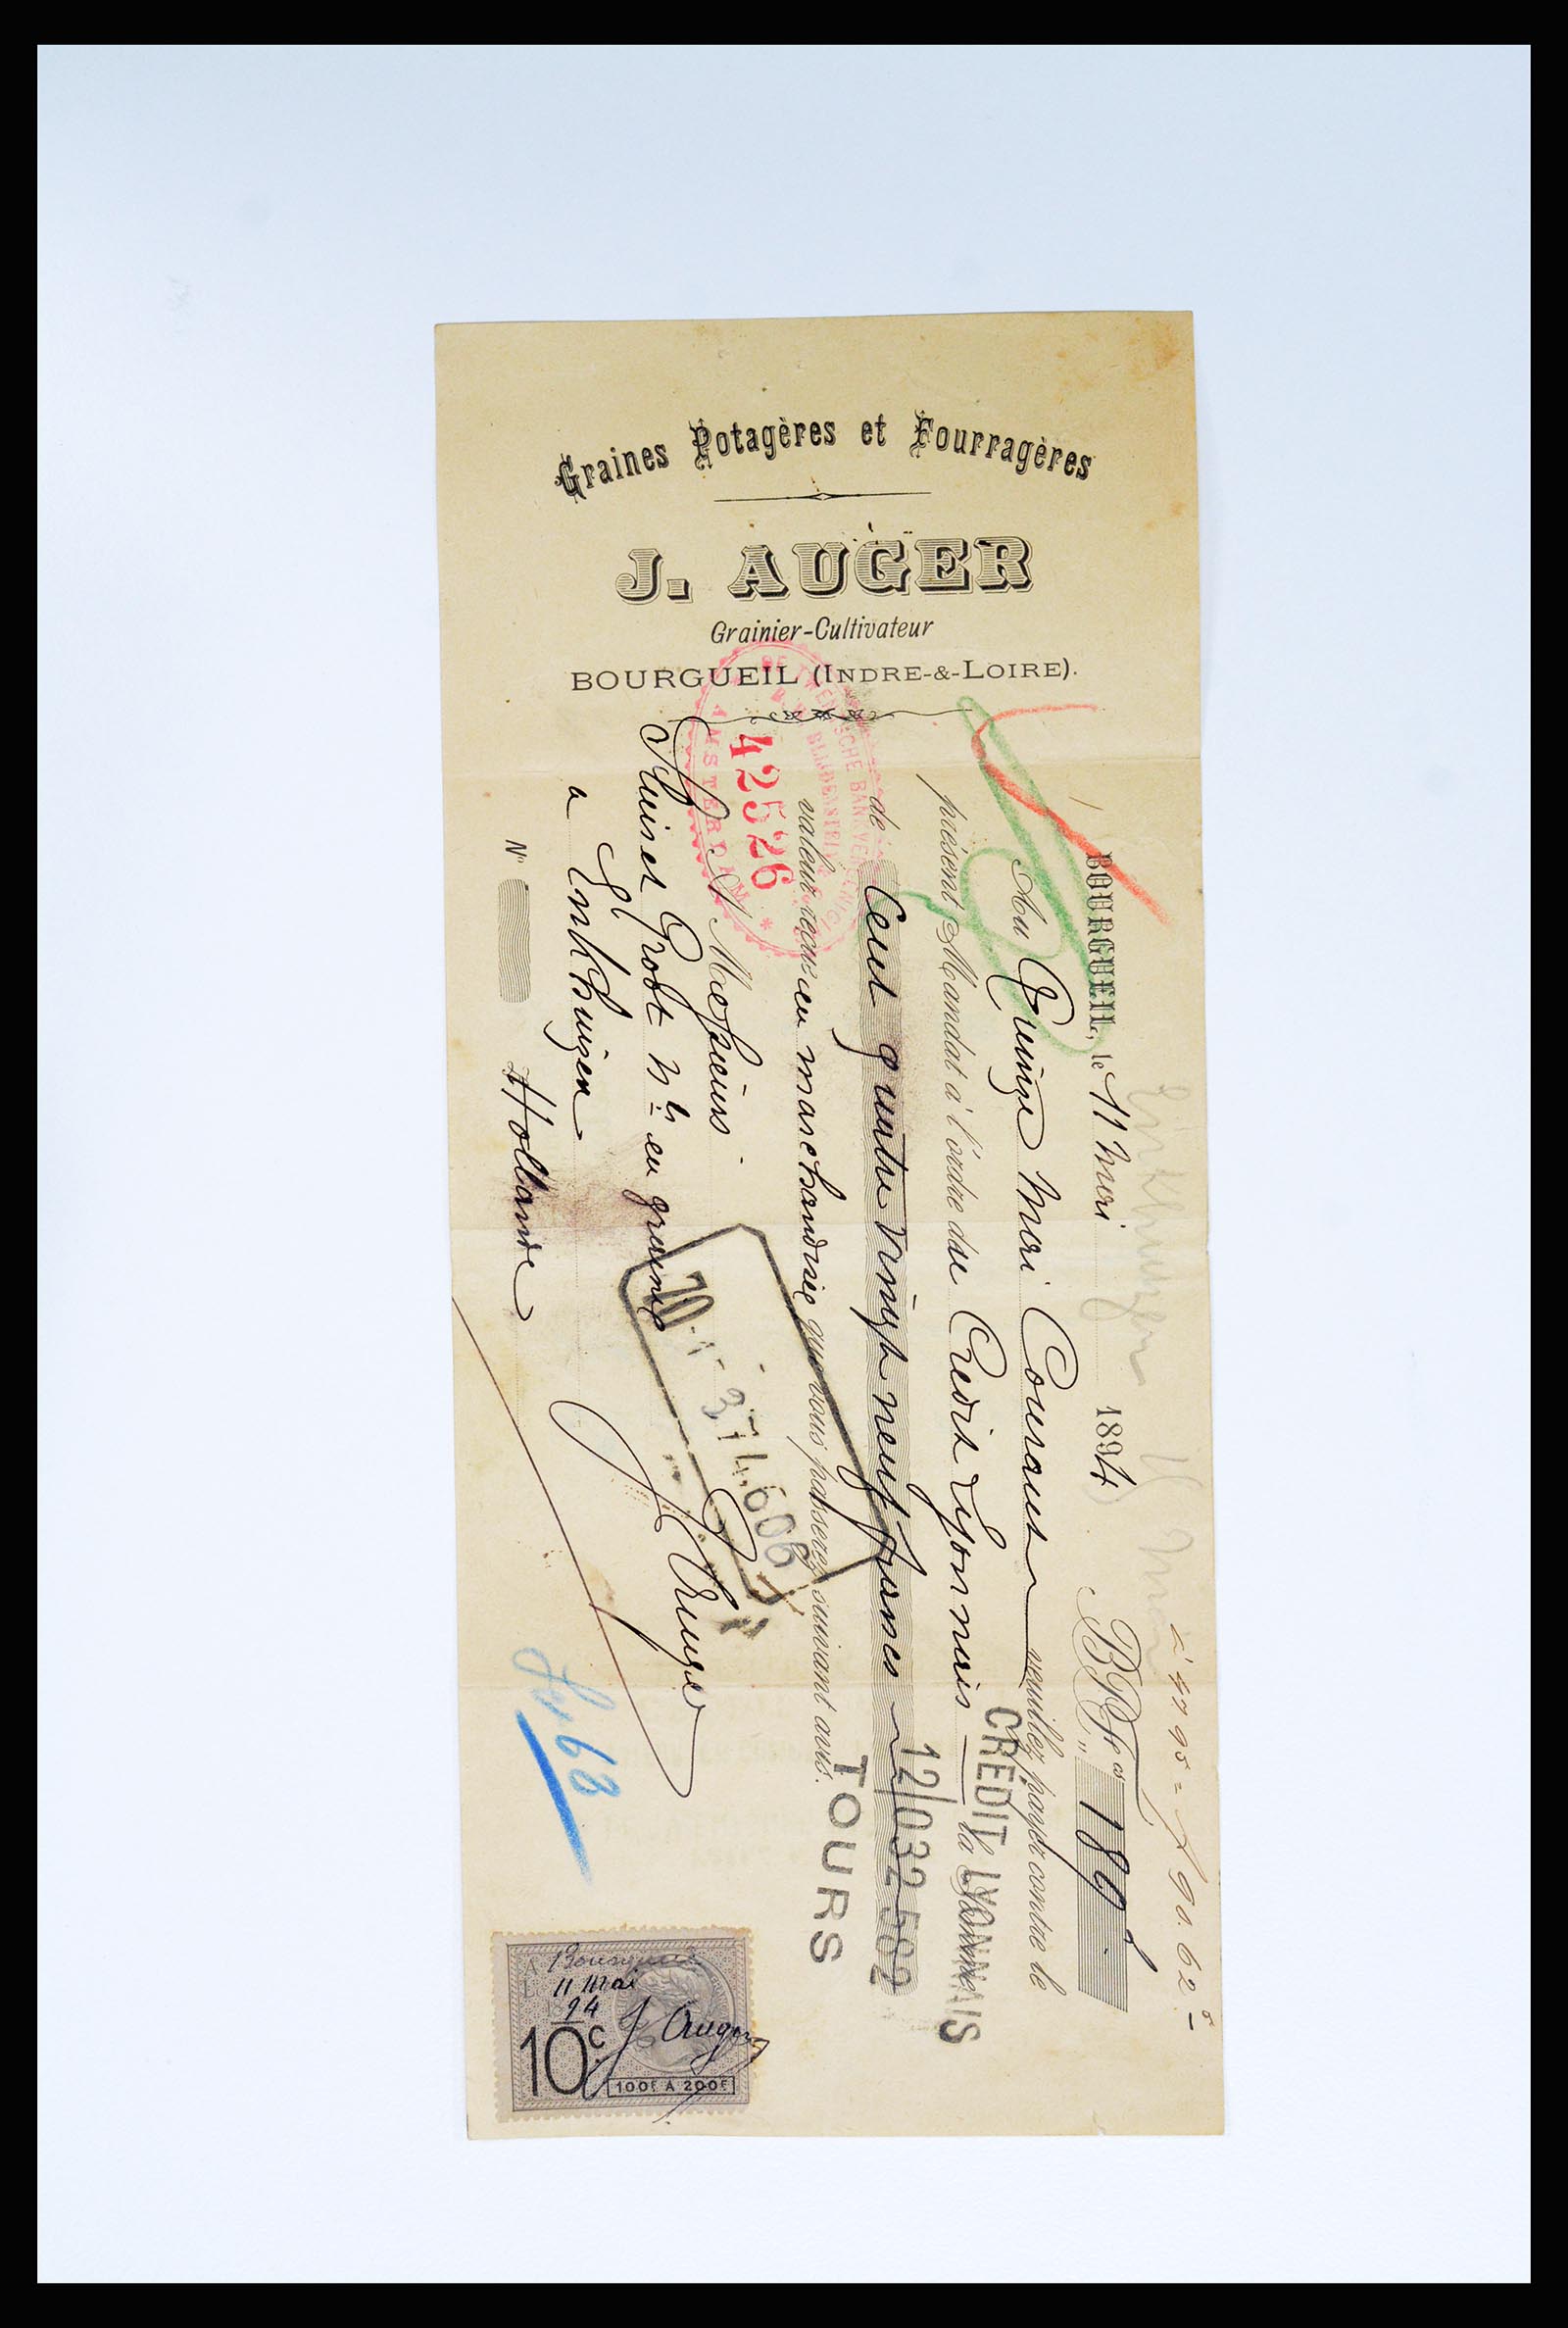 Graines Potagères et Fourragères
J. AUGER
Grainier-Cultivateur
BOURGUEIL (INDRE-&-LOIRE).
Enkhuizen
à 47 95 = f 90.62⁵
BOURGUEIL, le 11 Mai 1894 B.P.Fcs 189 f
Au Quinze Mai Courant veuillez payer contre le
présent Mandat à l'ordre du Credit Lyonnais la Somme
CRÉDIT LYONNAIS
de Cent quatre vingt neuf francs
12/032 582
valeur reçue en marchandises que vous passerez suivant avis.
TOURS
DE TWENTSCHE BANKVEREENIGING
42526
AMSTERDAM
A Messieurs
Sluis et Groot Nts en graines
a Enkhuizen
Hollande
N°
374,606
J Auger
A Bourgueil
11 Mai
94
J Auger
10c
100F À 200F